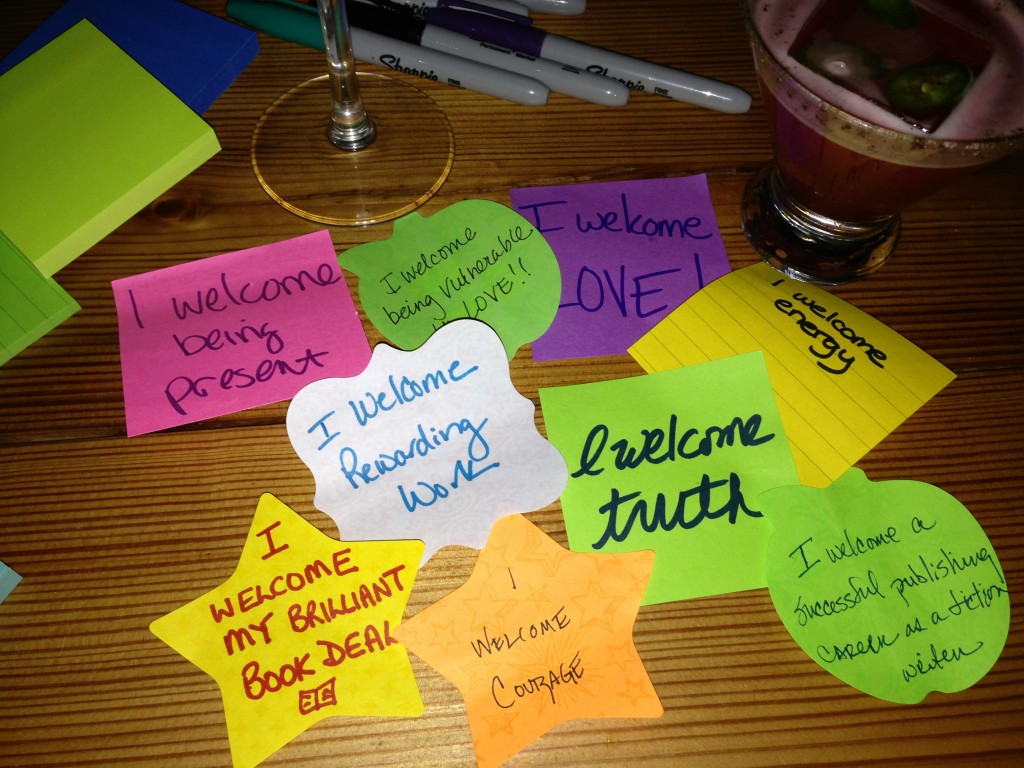 Sharpie FINE
Permanent Marker
Sharpie FINE
I welcome
being
present
I welcome
being vulnerable
LOVE!!
I welcome
LOVE!
I welcome
energy
I Welcome
Rewarding
Work
I welcome
truth
I
WELCOME
MY BRILLIANT
BOOK DEAL
I
WELCOME
COURAGE
I welcome a
successful publishing
career as a fiction
writer